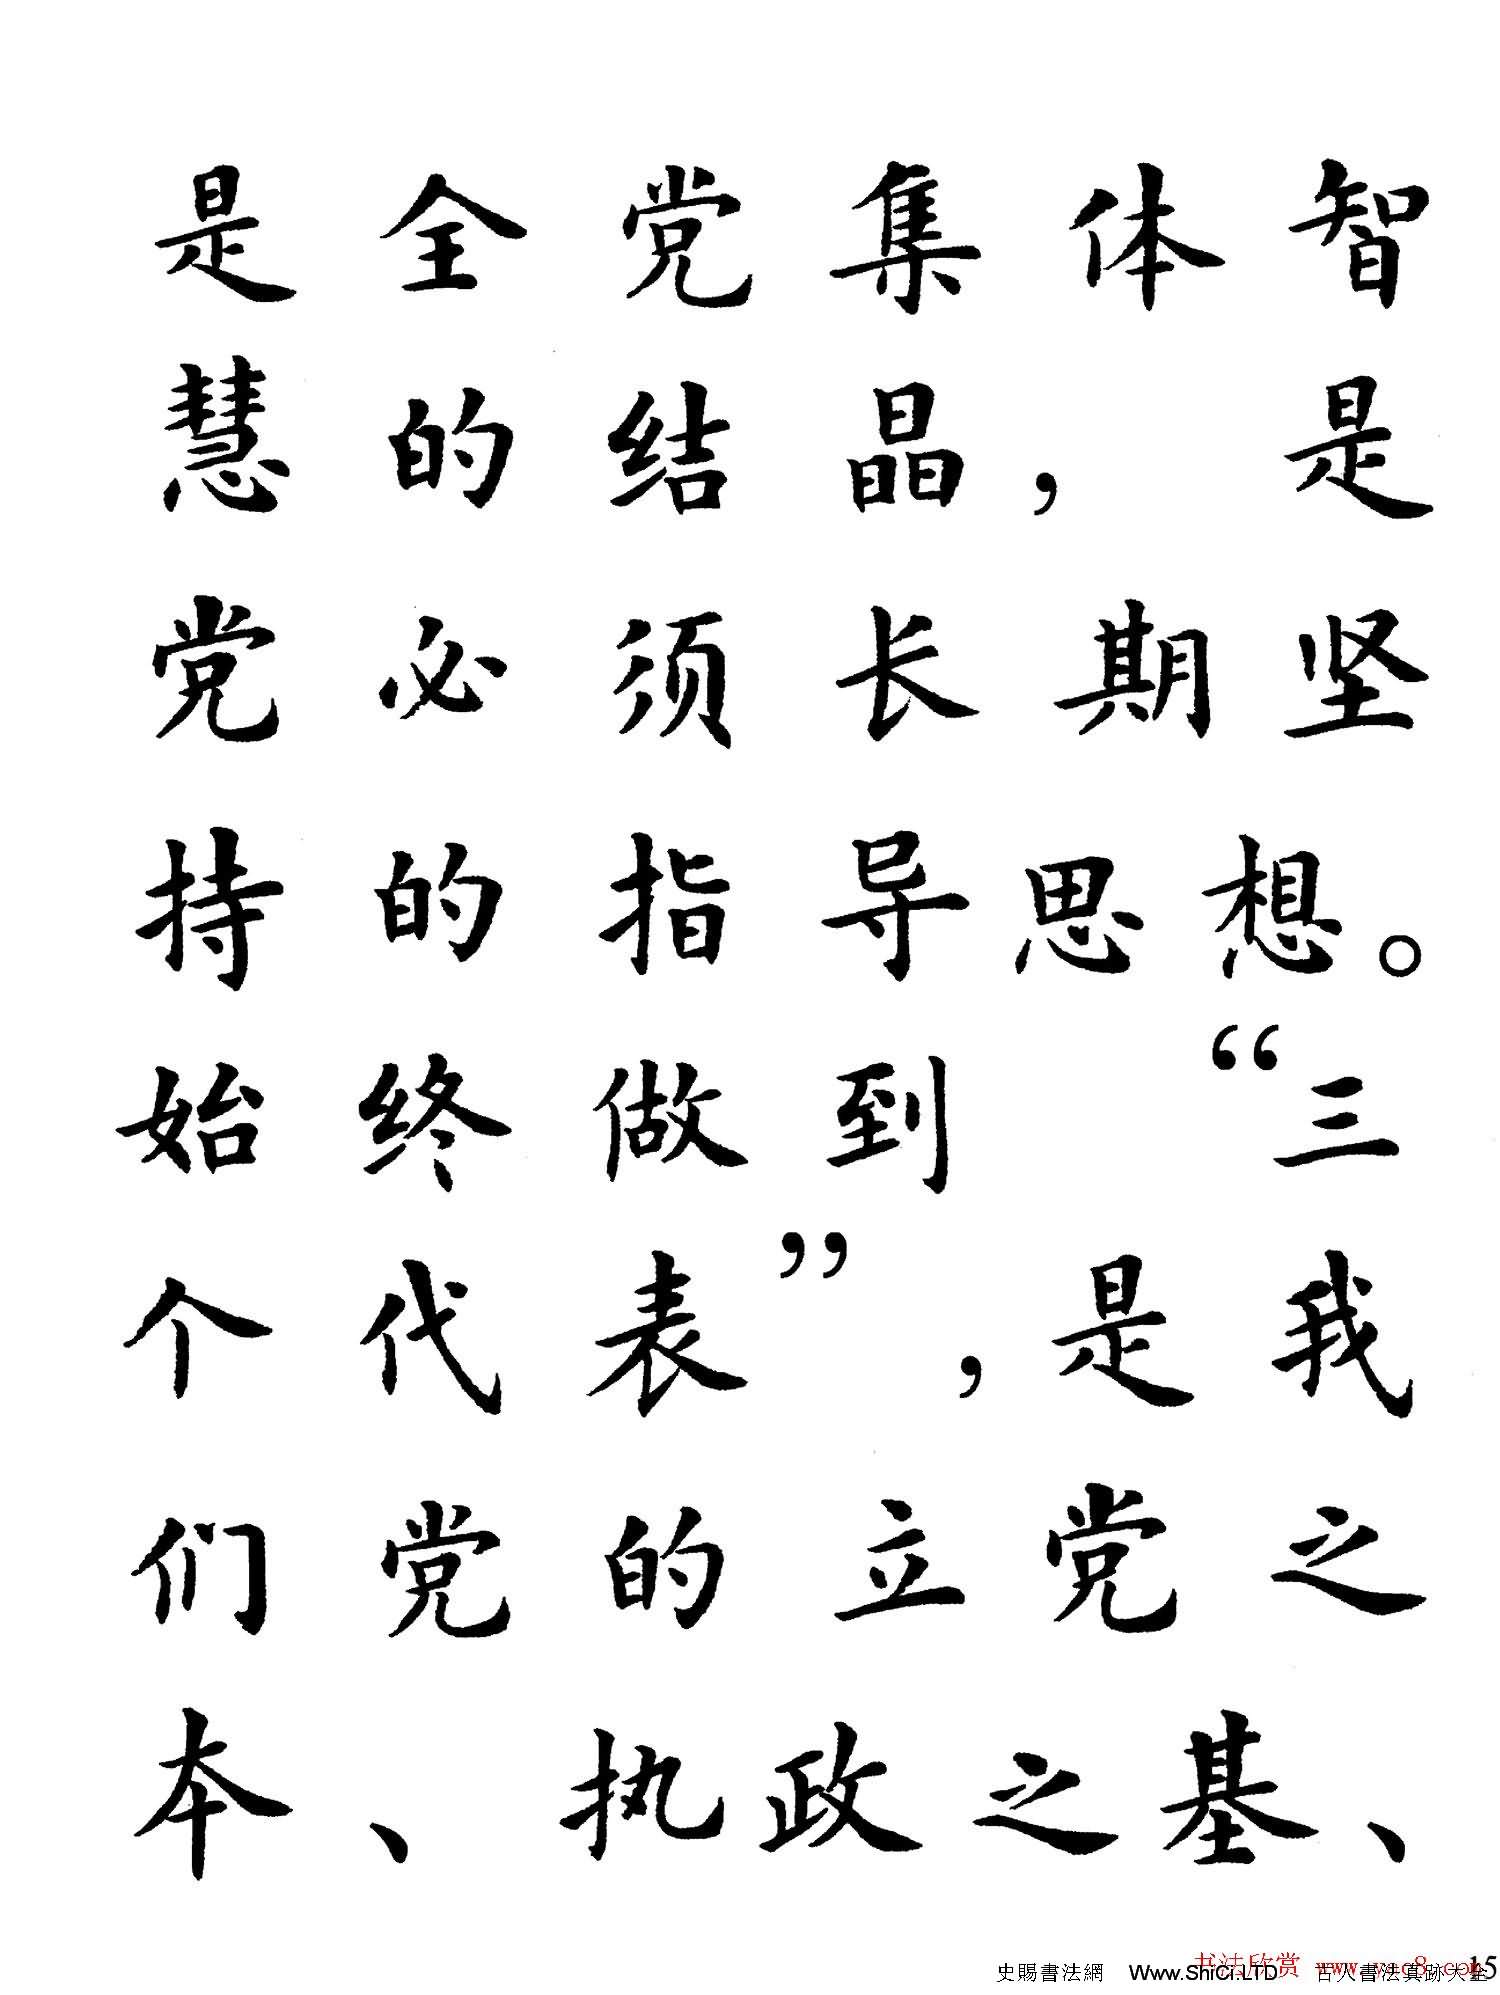 是全党集体智
慧的结晶，是
党必须长期坚
持的指导思想。
始终做到“三
个代表”，是我
们党的立党之
本、执政之基、
史賜書法網 Www.ShiCi.LTD 古人書法真跡大全
书法欣赏 www.yac8.com
15